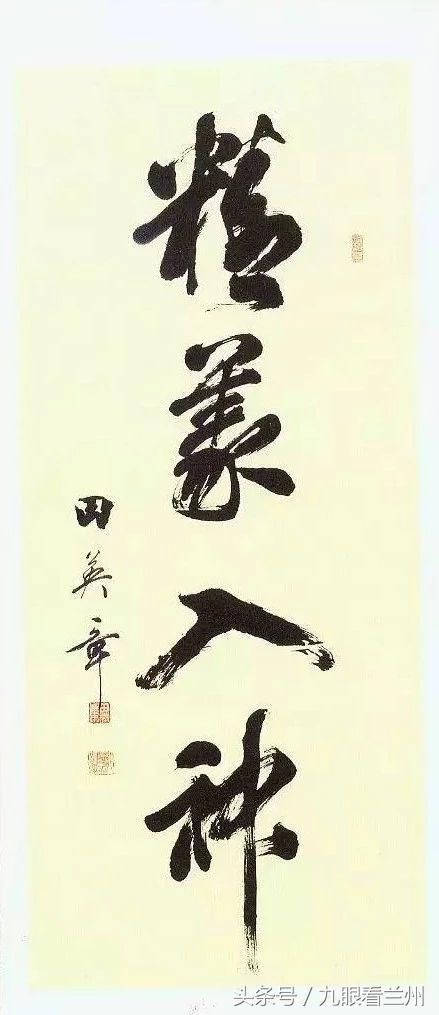 精義入神
田英章
头条号／九眼看兰州